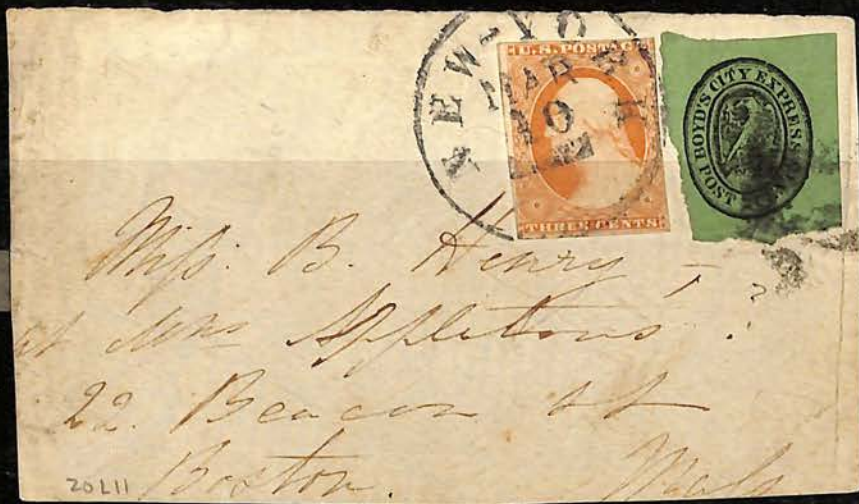 NEW-YORK
MAR
10
U.S. POSTAGE
THREE CENTS
BOYD'S CITY EXPRESS
POST
Miss. B. Henry -
at Mrs Appletons'
22. Beacon st
Boston. Mass
20L11